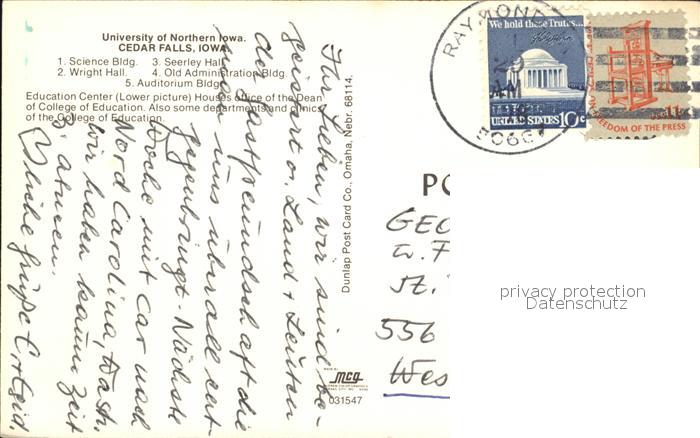 University of Northern Iowa.
CEDAR FALLS, IOWA
1. Science Bldg. 3. Seerley Hall
2. Wright Hall. 4. Old Administration Bldg.
5. Auditorium Bldg.
Education Center (Lower picture) Houses office of the Dean
of College of Education. Also some departments and clinics
of the College of Education.
Ihr Lieben, wir sind be-
geistert v. Land + Leuten
der Gastfreundschaft die
man uns überall ent-
gegenbringt. Nächste
Woche mit Car nach
Nord Carolina, Wash.
Wir haben kaum Zeit
z. atmen.
liche Grüße
Dunlap Post Card Co., Omaha, Nebr. 68114.
MADE BY
mcg
031547
RAYMOND
AM
5066
We hold these Truths...
UNITED STATES 10c
FREEDOM OF THE PRESS
11c
PO
GEO
St.
556
Wes
privacy protection
Datenschutz